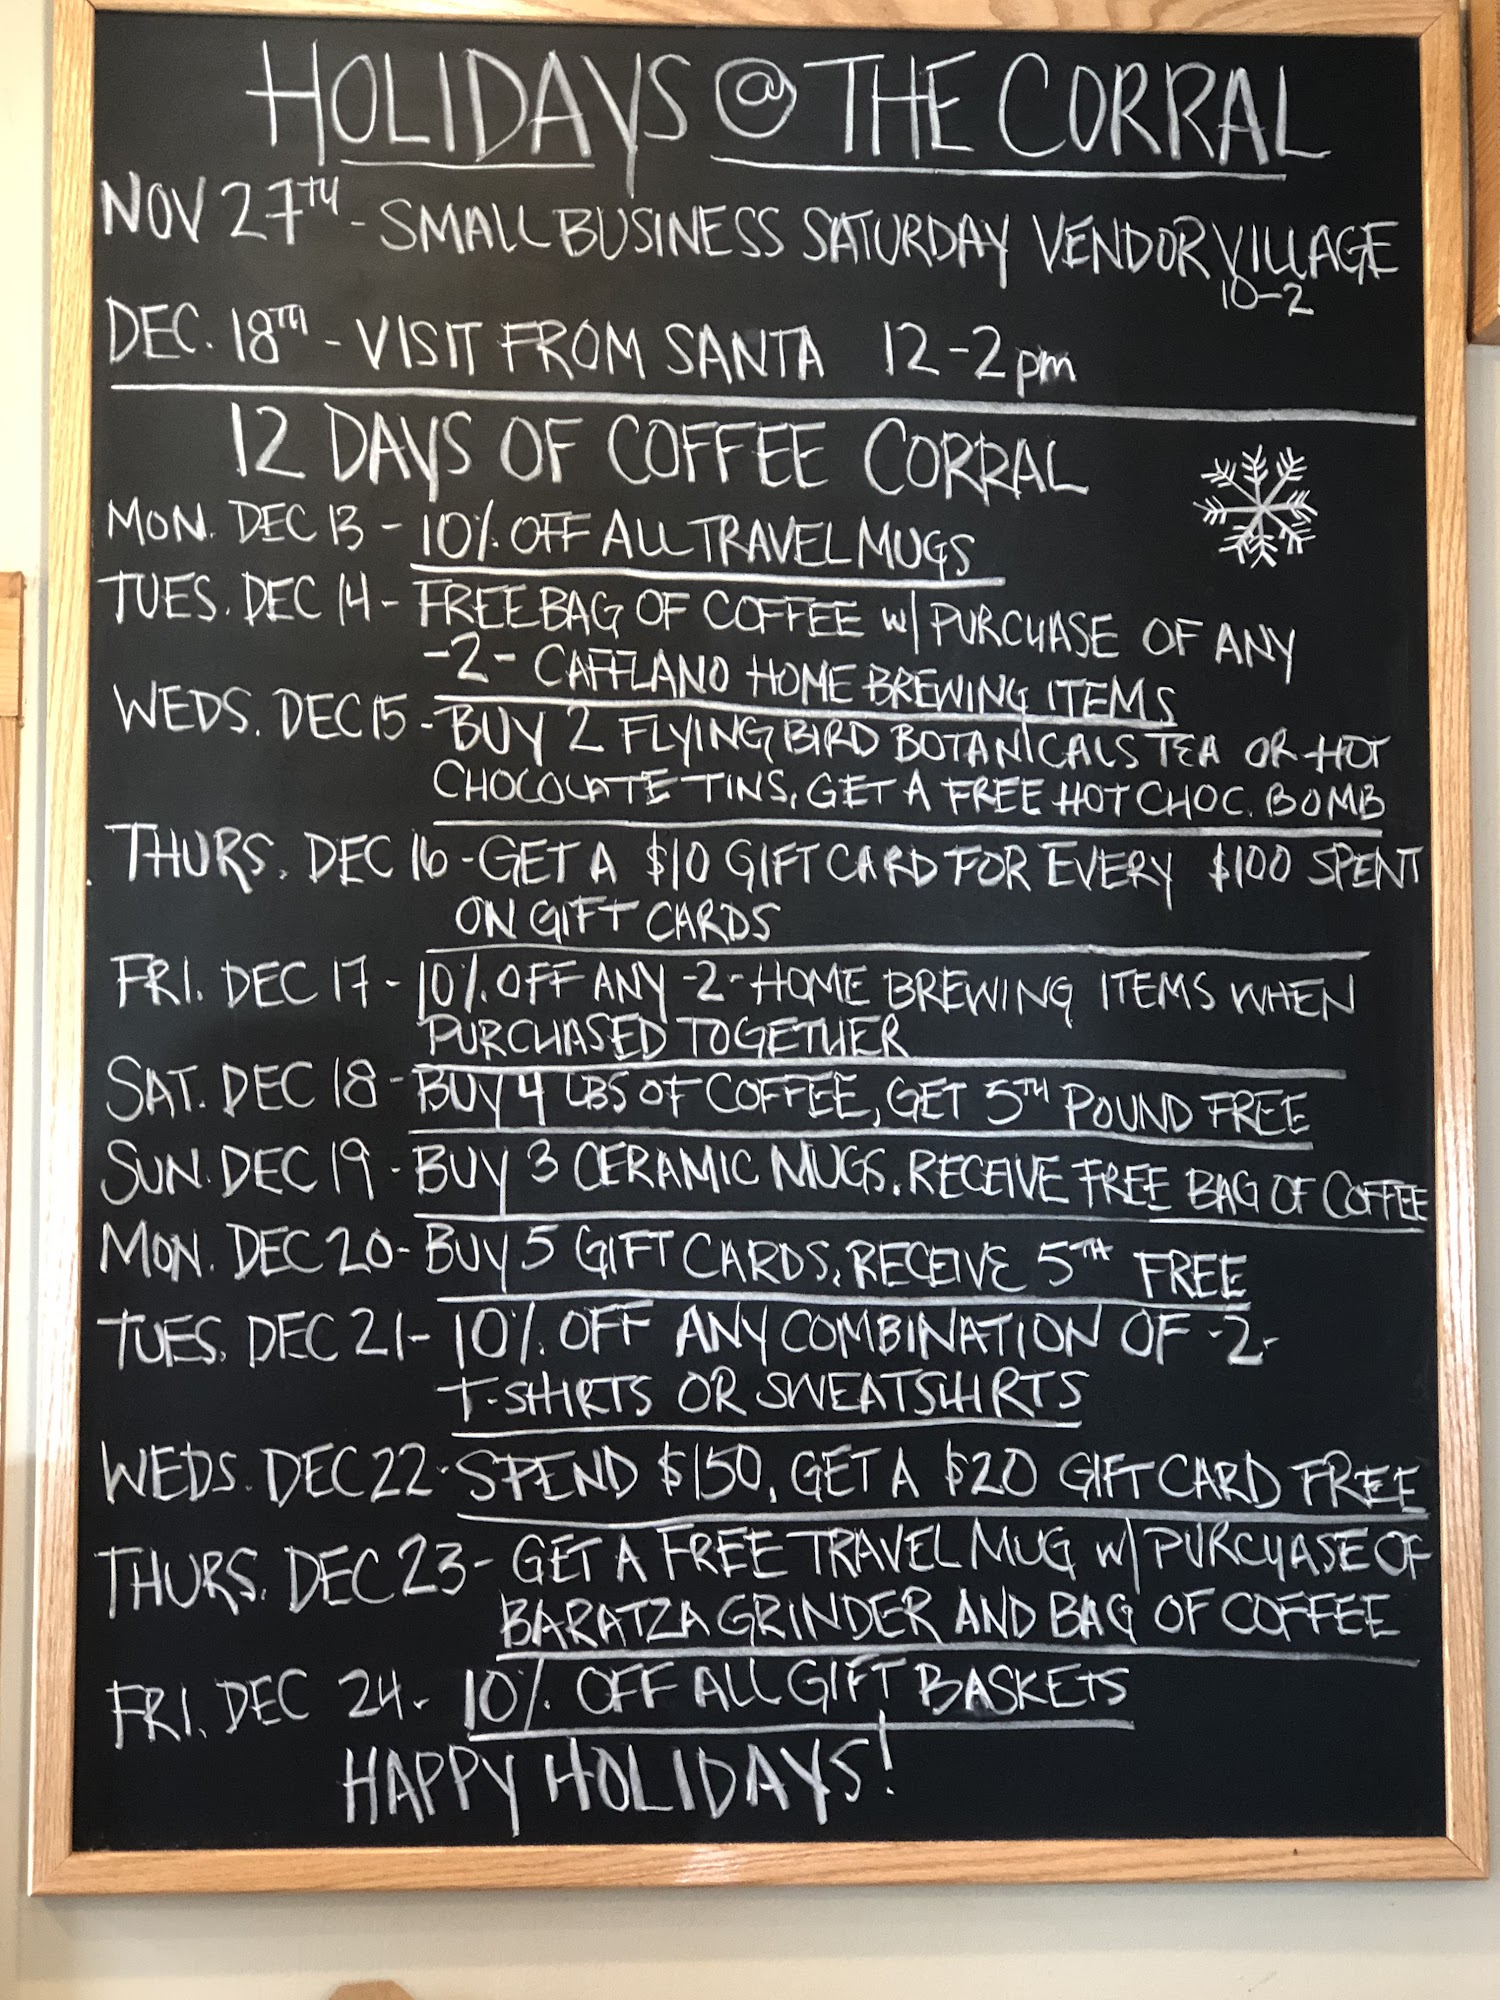 HOLIDAYS @ THE CORRAL
NOV 27TH - SMALL BUSINESS SATURDAY VENDOR VILLAGE
10-2
DEC. 18TH - VISIT FROM SANTA 12-2pm
12 DAYS OF COFFEE CORRAL
MON. DEC 13 - 10% OFF ALL TRAVEL MUGS
TUES. DEC 14 - FREE BAG OF COFFEE w/ PURCHASE OF ANY
-2- CAFFLANO HOME BREWING ITEMS
WEDS. DEC 15 - BUY 2 FLYING BIRD BOTANICALS TEA OR HOT
CHOCOLATE TINS, GET A FREE HOT CHOC. BOMB
THURS. DEC 16 - GET A $10 GIFT CARD FOR EVERY $100 SPENT
ON GIFT CARDS
FRI. DEC 17 - 10% OFF ANY -2- HOME BREWING ITEMS WHEN
PURCHASED TOGETHER
SAT. DEC 18 - BUY 4 LBS OF COFFEE, GET 5TH POUND FREE
SUN. DEC 19 - BUY 3 CERAMIC MUGS, RECEIVE FREE BAG OF COFFEE
MON. DEC 20 - BUY 5 GIFT CARDS, RECEIVE 5TH FREE
TUES. DEC 21 - 10% OFF ANY COMBINATION OF -2-
T-SHIRTS OR SWEATSHIRTS
WEDS. DEC 22 - SPEND $150, GET A $20 GIFT CARD FREE
THURS. DEC 23 - GET A FREE TRAVEL MUG w/ PURCHASE OF
BARATZA GRINDER AND BAG OF COFFEE
FRI. DEC 24 - 10% OFF ALL GIFT BASKETS
HAPPY HOLIDAYS!